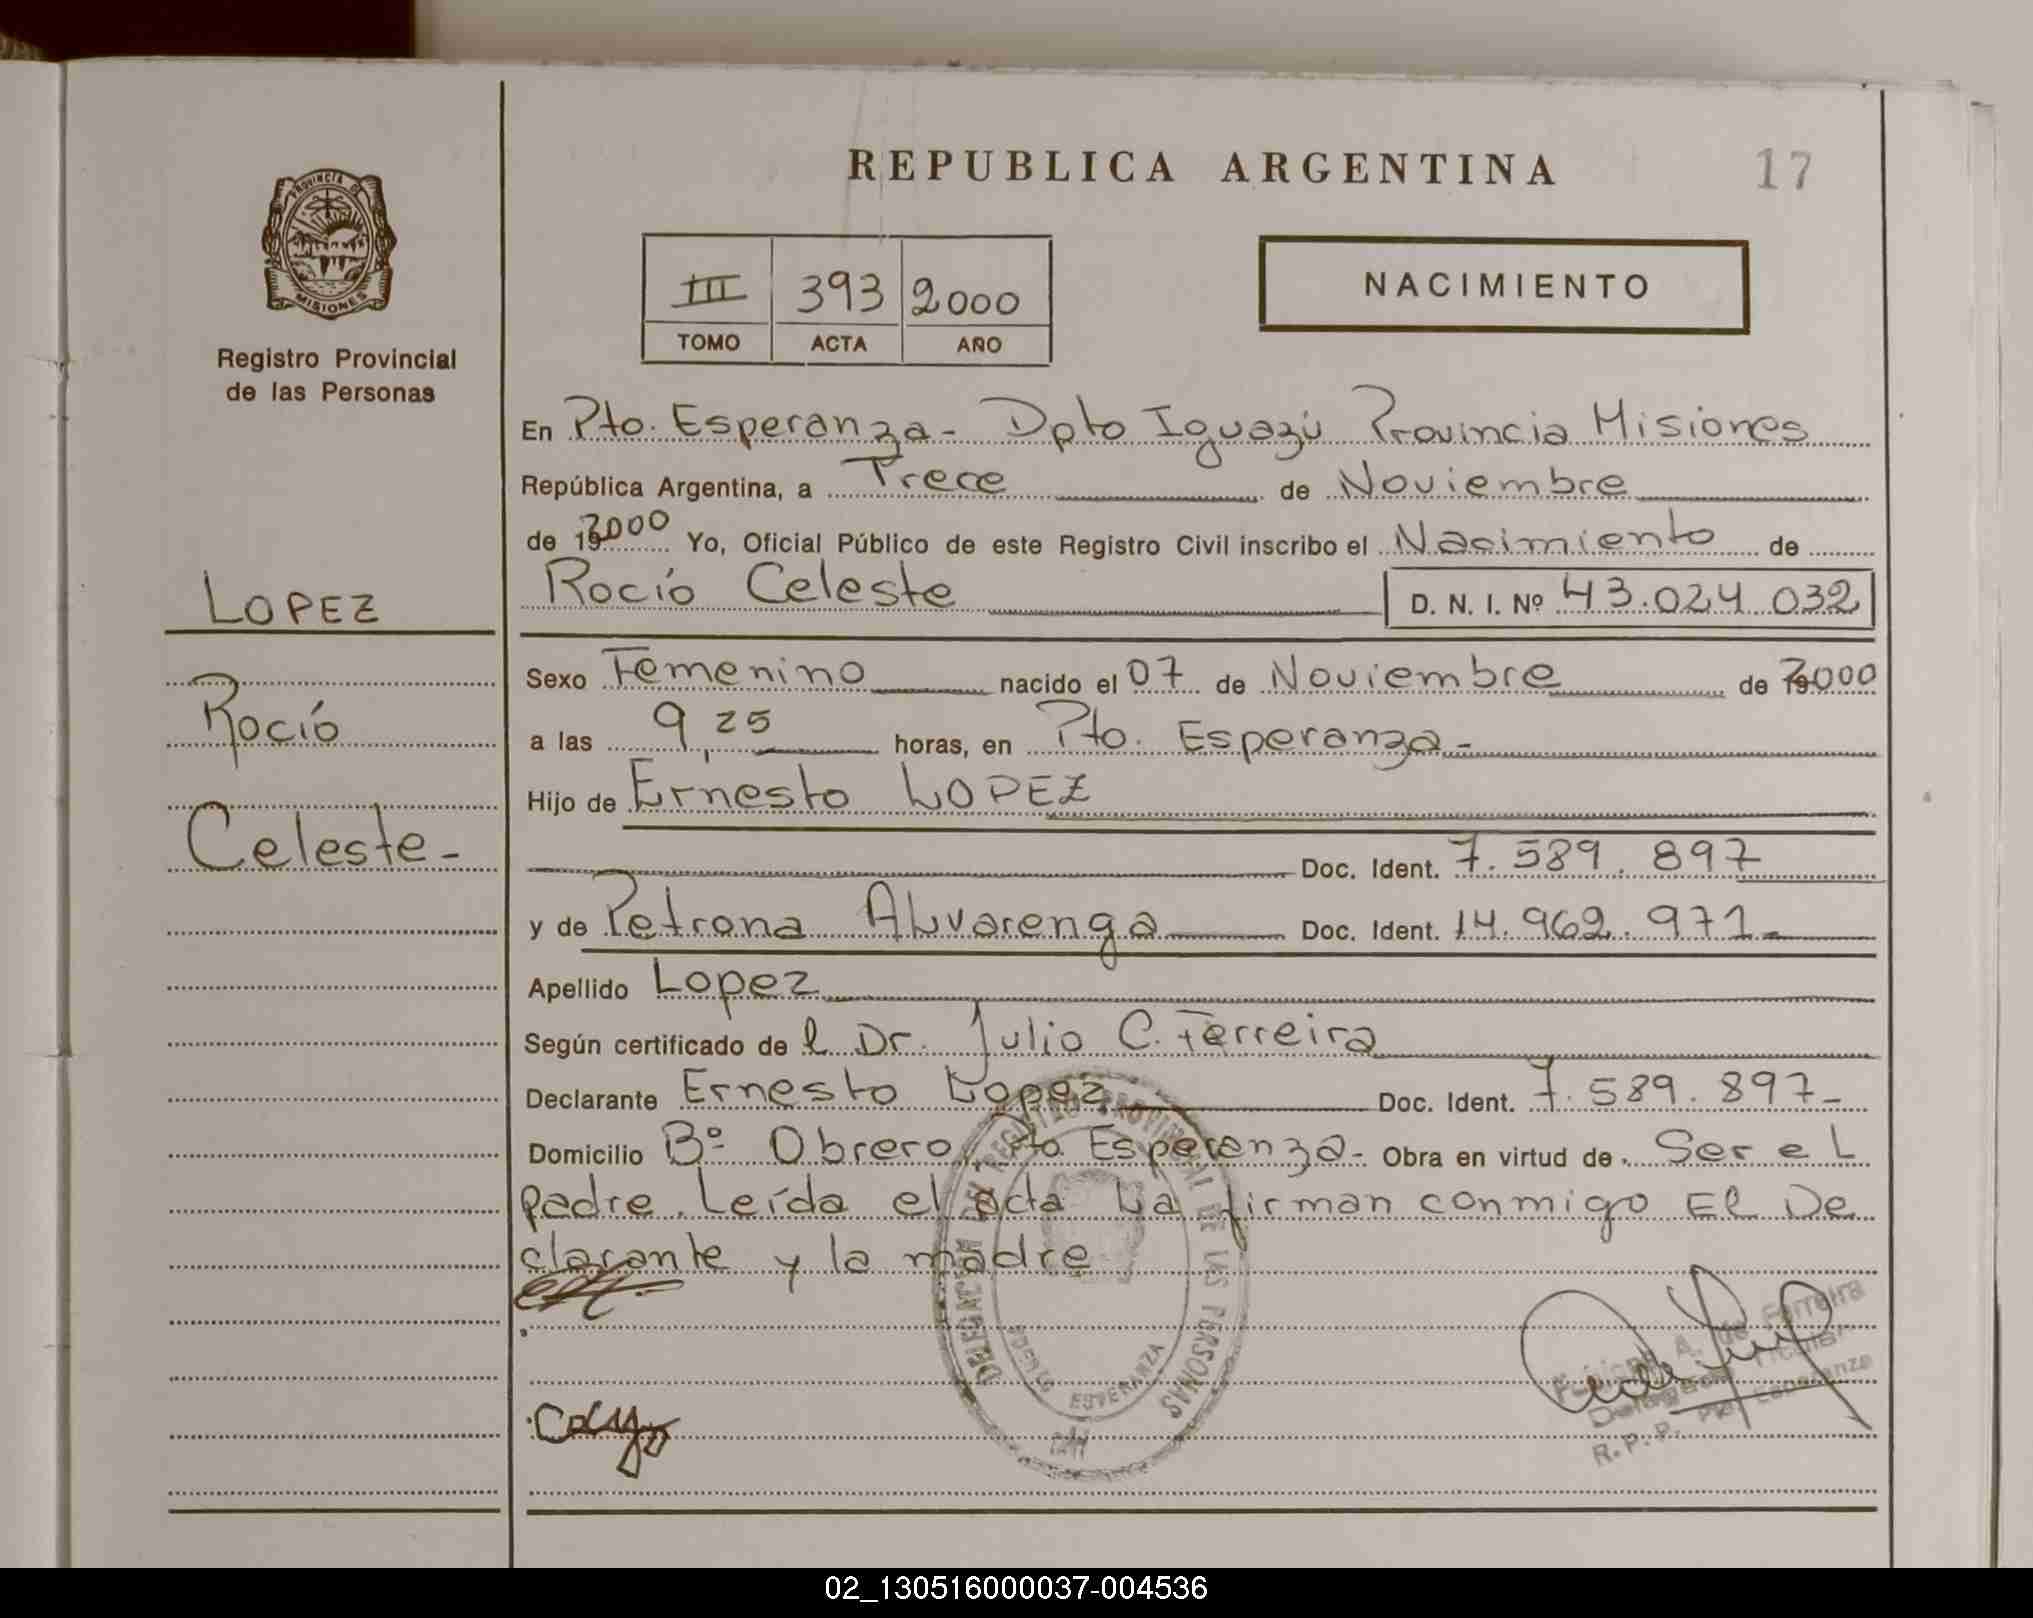 REPUBLICA ARGENTINA
17
PROVINCIA DE
MISIONES
Registro Provincial
de las Personas
III 393 2000
TOMO ACTA AÑO
NACIMIENTO
En Pto. Esperanza - Dpto Iguazú Provincia Misiones
República Argentina, a Trece de Noviembre
de 2000 Yo, Oficial Público de este Registro Civil inscribo el Nacimiento de
Rocío Celeste D. N. I. Nº 43.024 032
LOPEZ
Rocío
Celeste -
Sexo Femenino nacido el 07 de Noviembre de 2000
a las 9,25 horas, en Pto. Esperanza -
Hijo de Ernesto LOPEZ
Doc. Ident. 7.589.897
y de Petrona Alvarenga Doc. Ident. 14.962.971 -
Apellido Lopez
Según certificado de l Dr. Julio C. Ferreira
Declarante Ernesto Lopez Doc. Ident. 7.589.897 -
Domicilio Bº Obrero, Pto Esperanza - Obra en virtud de Ser el
padre. Leída el acta la firman conmigo El De
clarante y la madre
DELEGACION DEL REGISTRO PROVINCIAL DE LAS PERSONAS
PUERTO ESPERANZA
A. de Ferreira
Titular
R.P.P. Pto. Esperanza
02_130516000037-004536